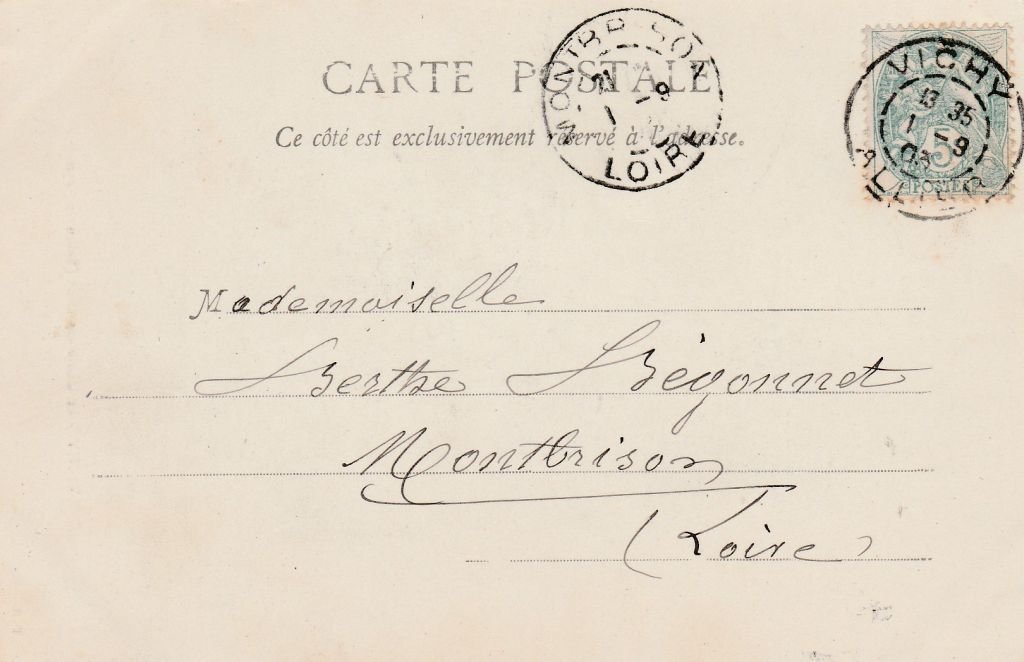 CARTE POSTALE
Ce côté est exclusivement réservé à l'adresse.
MONTBRISON
21
1 -9
LOIRE
VICHY
13 35
1 -9
03
ALLIER
5
POSTES
Mademoiselle
Berthe Bégonnet
Montbrison
(Loire)